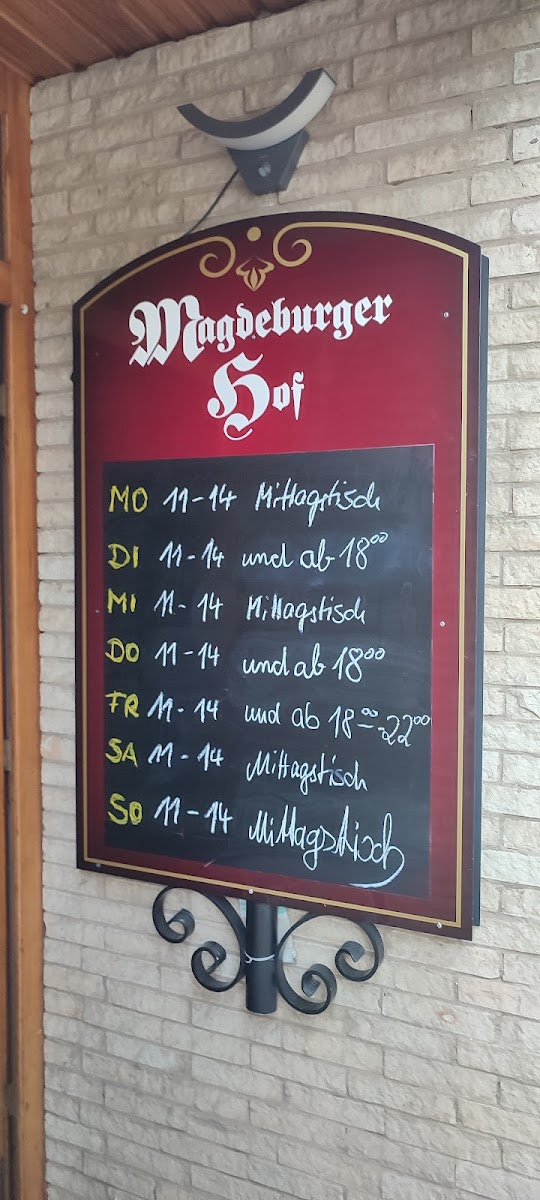 Magdeburger
Hof
MO 11-14 Mittagstisch
DI 11-14 und ab 18⁰⁰
MI 11-14 Mittagstisch
DO 11-14 und ab 18⁰⁰
FR 11-14 und ab 18-⁰⁰-22⁰⁰
SA 11-14 Mittagstisch
SO 11-14 Mittagstisch